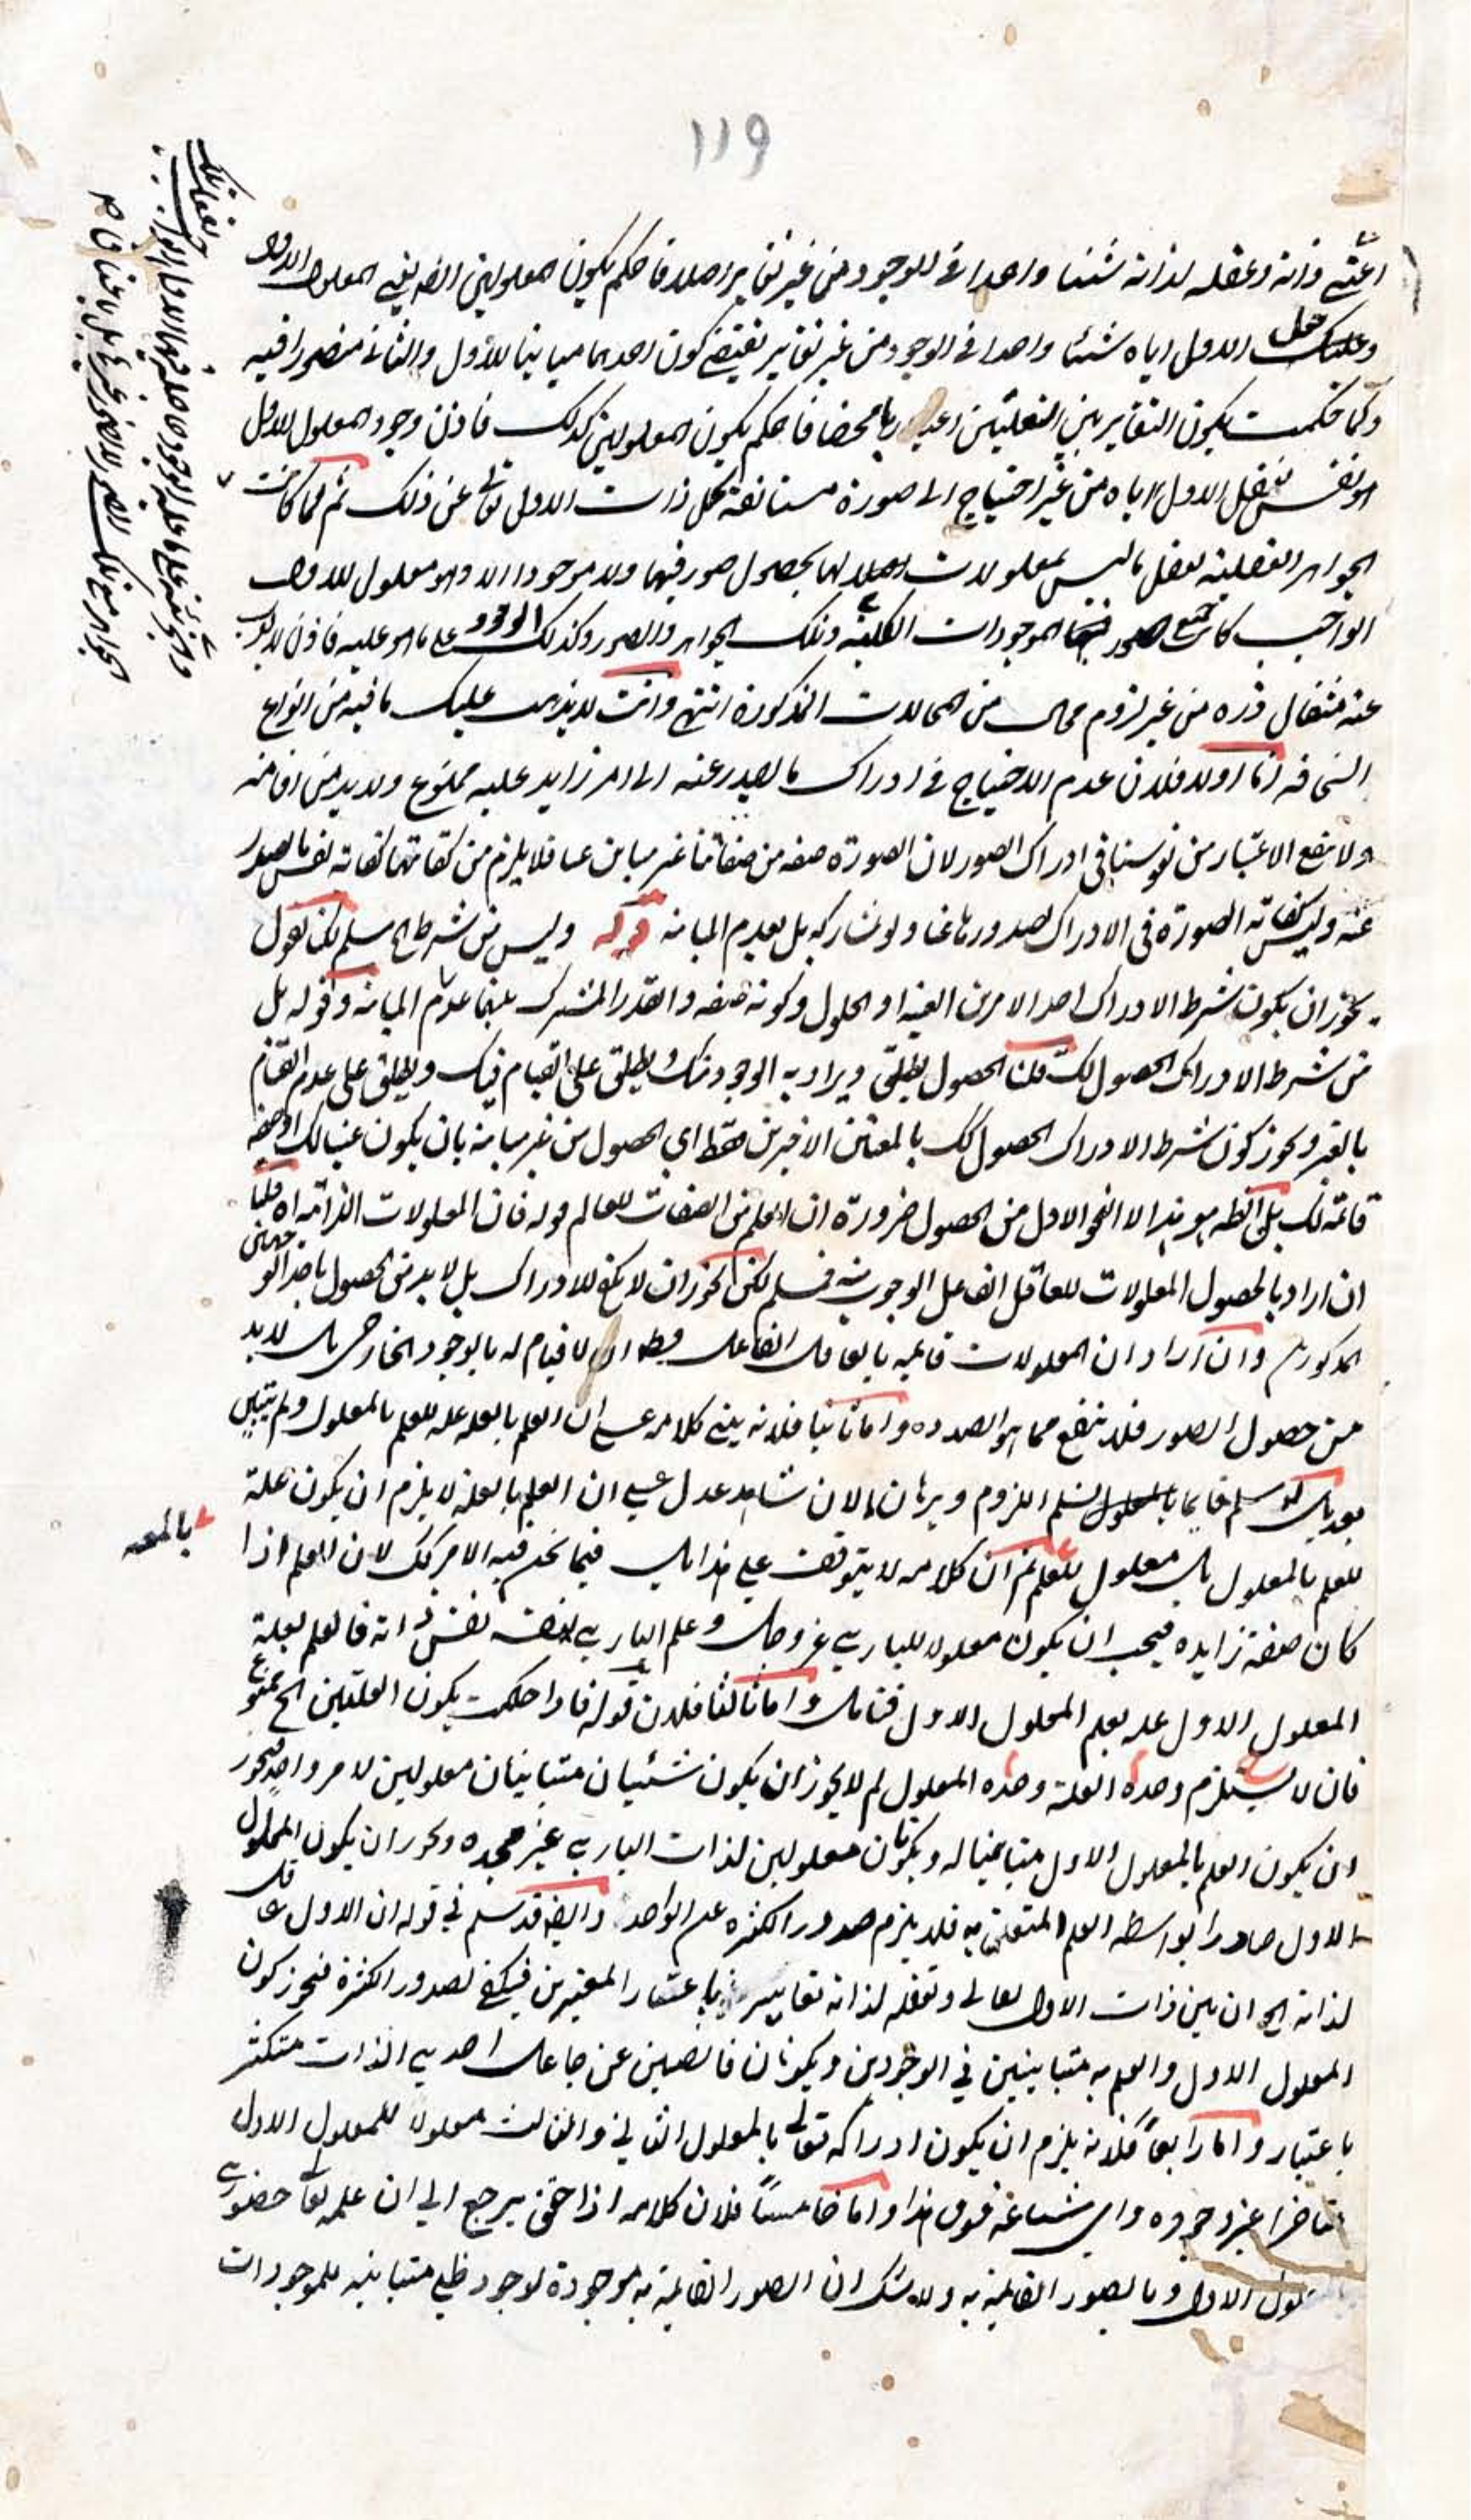 ١١٩
اعنى ذاته وعقله لذاته شيئا واحدا فى الوجود من غير تغاير اصلا فاحكم بكون المعلولين ايضا اعنى المعلول الاول
وعقل الاول اياه شيئا واحدا فى الوجود من غير تغاير يقتضى كون احدهما مباينا للاول والثانى متصورا فيه
وكما حكمت بكون التغاير بين التعلتين اعتباريا محضا فاحكم بكون المعلولين كذلك فاذن وجود المعلول الاول
هو نفس تعقل الاول اياه من غير احتياج الى صورة مستانفة تحل ذات الاول تعالى عن ذلك ثم لما كانت
الجواهر العقلية تعقل ما ليس بمعلولات لها بحصول صور فيها ولا موجود الا وهو معلول للاول
الواجب كانت جميع صور الموجودات الكلية وتلك الجواهر والصور وكذلك الوجود على ما هو عليه فاذن لا يعزب
عنه مثقال ذرة من غير لزوم محال من المحالات المذكورة انتهى وانت لا يذهب عليك ما فيه من انواع
السخافة اما اولا فلان عدم الاحتياج فى ادراك ما يصدر عنه الى امر زايد عليه ممنوع ولا بد من اقامته
ولا ينفع الاعتبار من نفوسنا فى ادراك الصور لان الصورة صفة من صفاتنا غير مباين عنا فلا يلزم من كفايتها كفاية نفس ما يصدر
عنه وليس كفاية الصورة فى الادراك لصدورها عنا ولو بمشاركة بل بعدم المباينة قوله وليس من شرط الخ مسلم لكنا نقول
يجوز ان يكون شرط الادراك احد الامرين العينية او الحلول وكونه صفة والقدر المشترك بينهما عدم المباينة وقوله بل
من شرط الادراك الحصول لك قلنا الحصول يطلق ويراد به الوجود منك ويطلق على القيام فيك ويطلق على عدم القيام
بالغير ويجوز كون شرط الادراك الحصول لك بالمعنيين الاخيرين فقط اى الحصول من غير مباينة بان يكون عينا لك او صفة
قائمة لك بل الظاهر هو هذا لا النحو الاول من الحصول ضرورة ان العلم من الصفات للعالم قوله فان المعلولات الذاتية اه قلنا
ان اراد بالحصول المعلولات للعاقل الفاعل الوجود منه فمسلم لكن يجوز ان لا يكفى للادراك بل لا بد من الحصول باحد النحوين
المذكورين وان اراد ان المعلولات قائمة بالعاقل الفاعل فظاهر ان لا قيام له بالوجود الخارجى بل لا بد
من حصول الصور فلا ينفع مما هو بصدده واما ثانيا فلانه يبتنى كلامه على ان العلم بالعلة علة للعلم بالمعلول ولم يتبين
بعد بل لو سلم فانما يسلم اللزوم وبرهان الان شاهد عدل على ان العلم بالعلة لا يلزم ان يكون علة
للعلم بالمعلول بل معلول للعلم بالمعلول ثم ان كلامه لا يتوقف على هذا بل فيما نحن فيه الامر كك لان العلم اذا
كان صفة زايدة فيجب ان يكون معلولا للبارى عز وجل وعلم البارى بنفسه نفس ذاته فالعلم بعلة
المعلول الاول علة لعلم المعلول الاول فتامل واما ثالثا فلان قوله فاذا حكمت بكون العلتين الخ ممنوع
فان لا يستلزم وحدة العلة وحدة المعلول لم لا يجوز ان يكون شيئان متباينان معلولين لامر واحد فيجوز
ان يكون العلم بالمعلول الاول متباينا له ويكونان معلولين لذات البارى عز مجده ويجوز ان يكون المعلول
الاول صادرا بواسطة العلم المتعلق به فلا يلزم صدور الكثرة عن الواحد وايضا قد سلم فى قوله ان الاول عاقل
لذاته الخ ان بين ذات الاول تعالى وتعقله لذاته تغاير باعتبار المعتبرين فيكفى لصدور الكثرة فيجوز كون
المعلول الاول والعلم به متباينين فى الوجودين ويكونان فائضين عن جاعل احدى الذات متكثر
باعتبار واما رابعا فلانه يلزم ان يكون ادراكه تعالى بالمعلول الثانى والثالث معلولا للمعلول الاول
متاخرا عن وجوده واى شناعة فوق هذا واما خامسا فلان كلامه اذا حقق يرجع الى ان علمه تعالى حضورى
بالمعلول الاول وبالصور القائمة به ولا شك ان الصور القائمة به موجودة لوجود ظلى متباينة للموجودات
بالمعلول